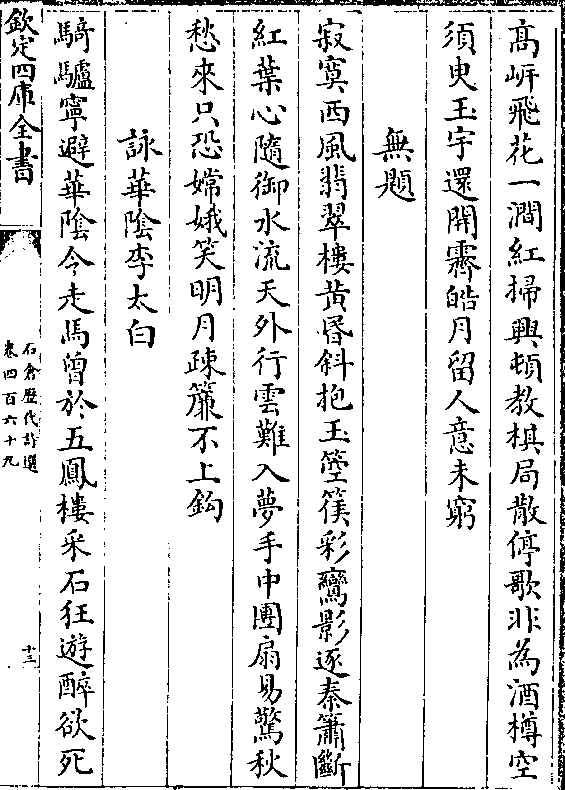 高㟁飛花一澗紅掃興頓教棋局散停歌非為酒樽空
須臾玉宇還開霽皓月留人意未窮
無題
寂寞西風翡翠樓黄昏斜抱玉箜篌彩鸞影逐秦簫斷
紅葉心隨御水流天外行雲難入夢手中團扇易驚秋
愁來只恐嫦娥笑明月疎簾不上鈎
詠華隂李太白
騎驢寜避華隂令走馬曾於五鳳樓采石狂遊醉欲死
欽定四庫全書
石倉歴代詩選
卷四百六十九
十三